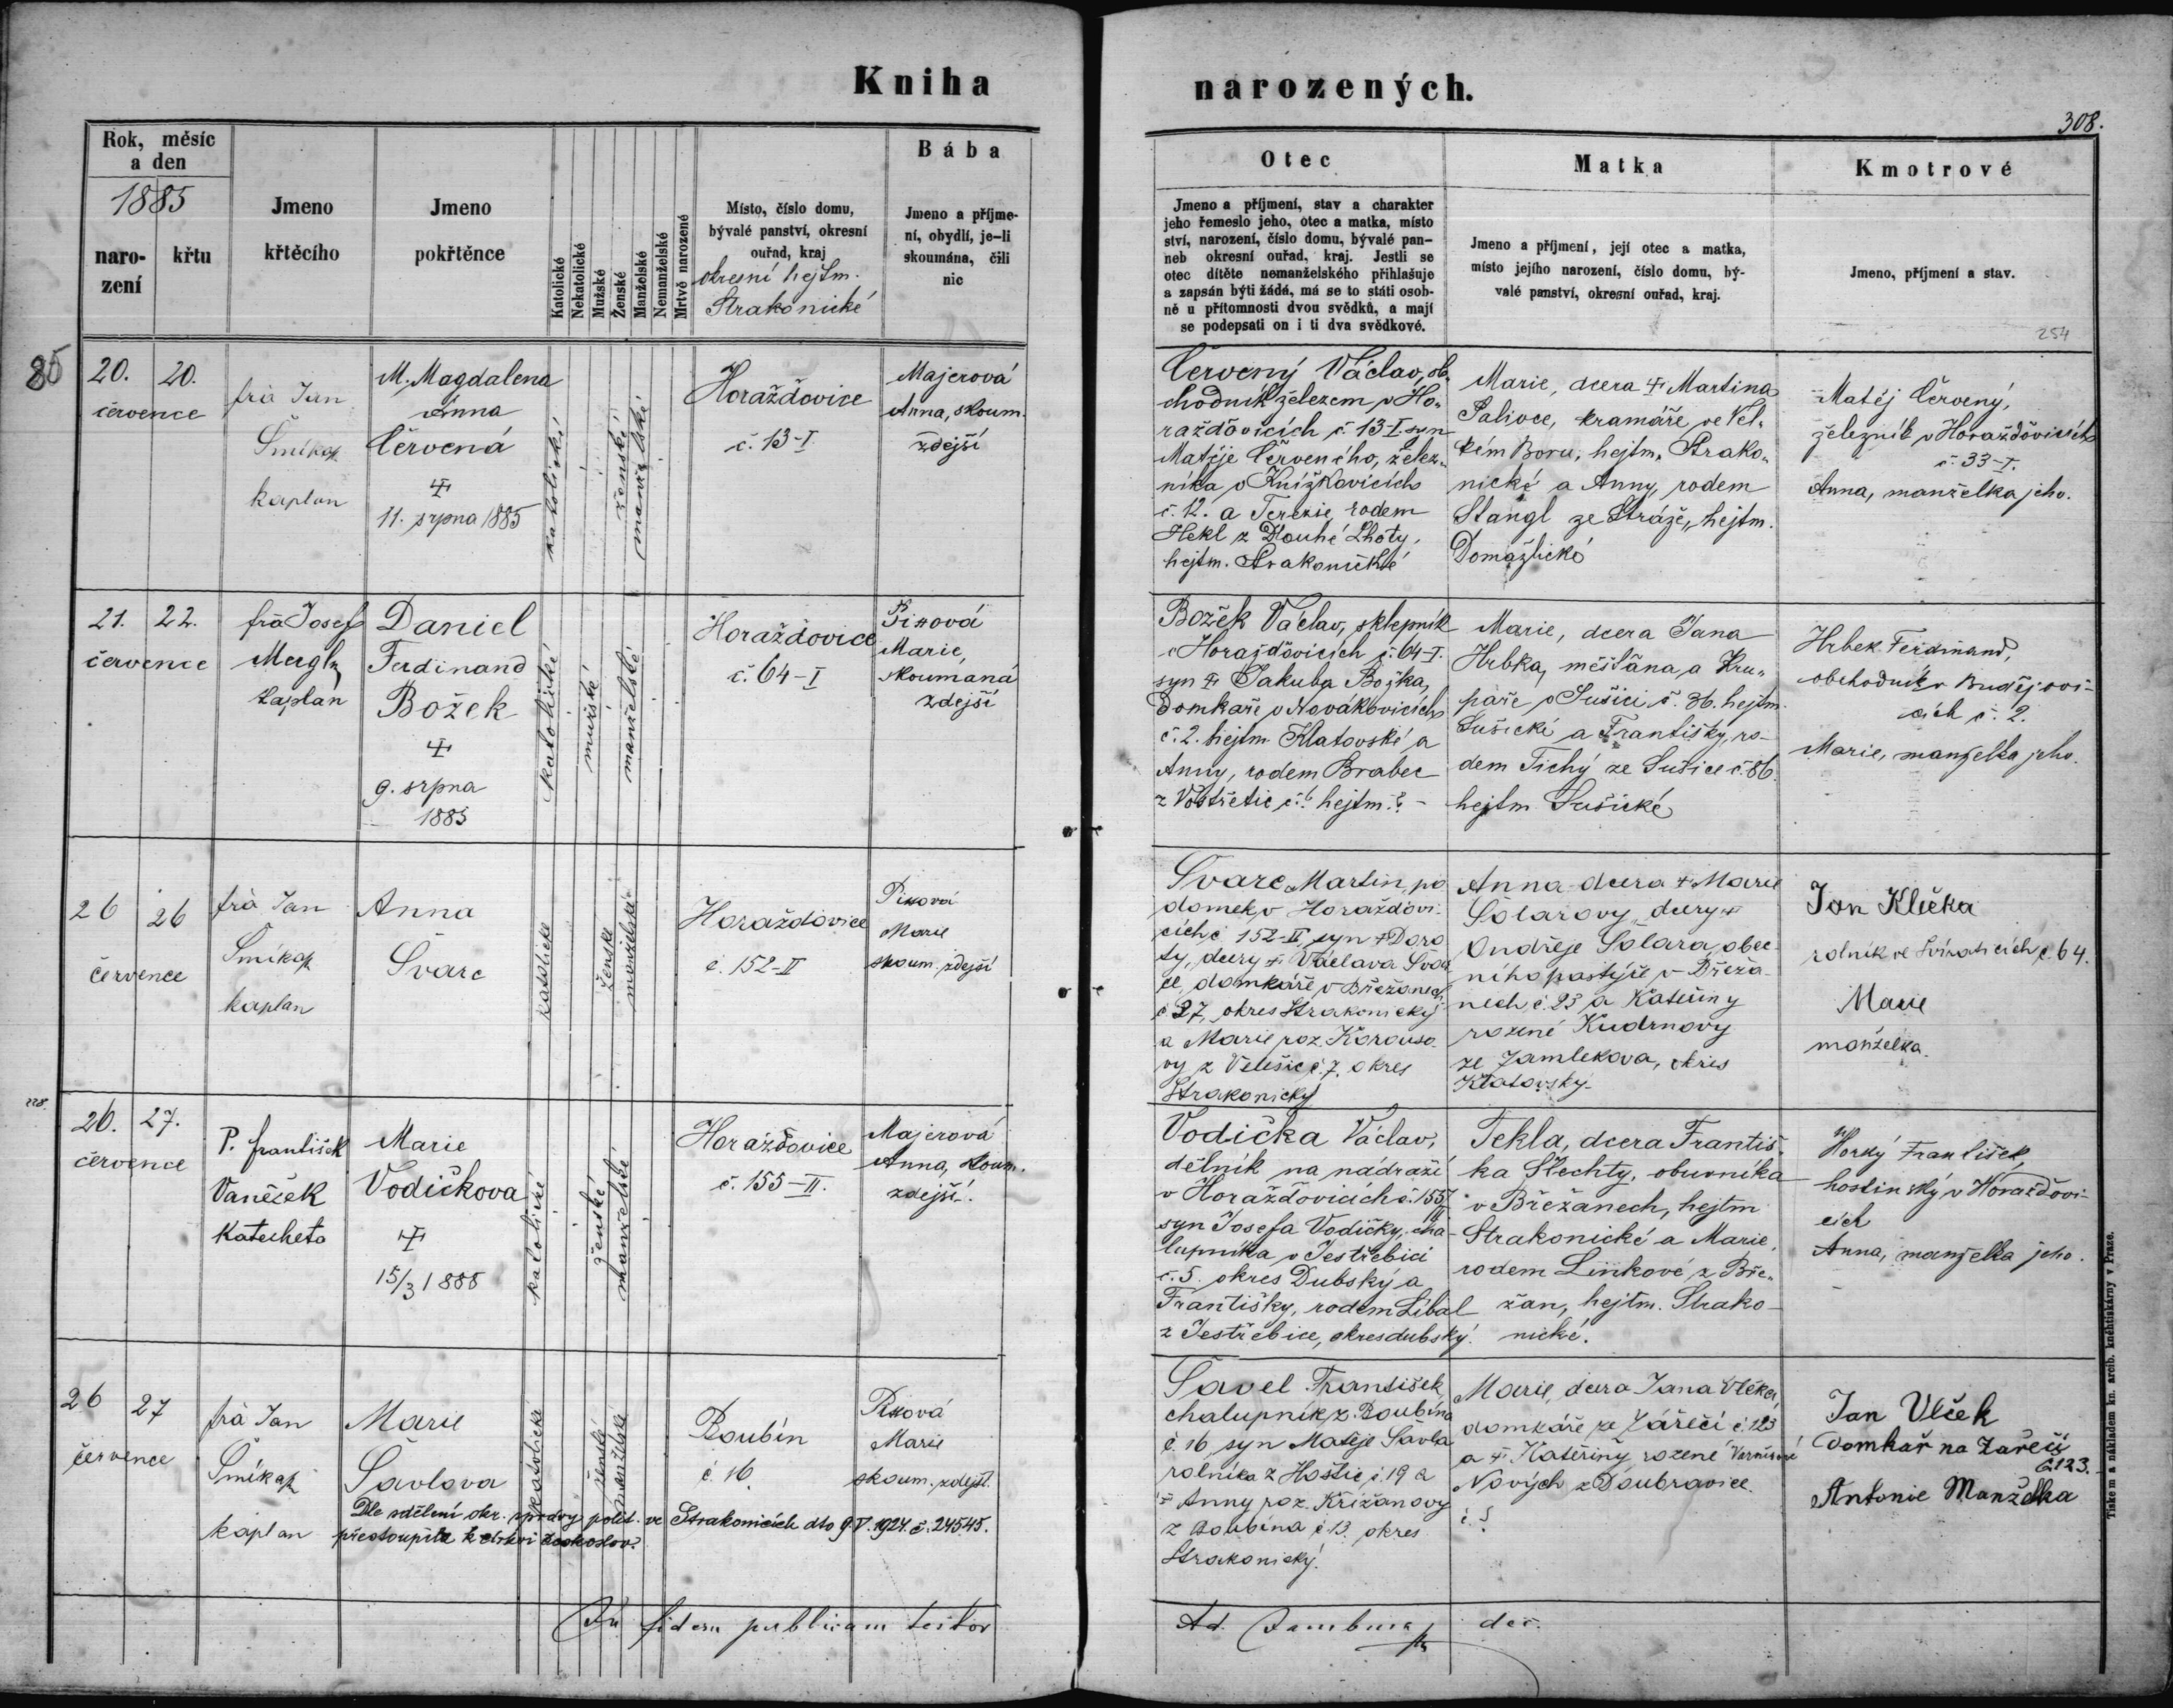 Kniha
narozených.
308.
Rok, měsíc
a den
1885
naro-
zení
křtu
Jmeno
křtěcího
Jmeno
pokřtěnce
Katolické
Nekatolické
Mužské
Ženské
Manželské
Nemanželské
Mrtvě narozené
Místo, číslo domu,
bývalé panství, okresní
ouřad, kraj
okresní hejtm.
Strakonické
Bába
Jmeno a příjme-
ní, obydlí, je-li
skoumána, čili
nic
Otec
Jmeno a příjmení, stav a charakter
jeho řemeslo jeho, otec a matka, místo
ství, narození, číslo domu, bývalé pan-
neb okresní ouřad, kraj. Jestli se
otec dítěte nemanželského přihlašuje
a zapsán býti žádá, má se to státi osob-
ně u přítomnosti dvou svědků, a mají
se podepsati on i ti dva svědkové.
Matka
Jmeno a příjmení, její otec a matka,
místo jejího narození, číslo domu, bý-
valé panství, okresní ouřad, kraj.
Kmotrové
Jmeno, příjmení a stav.
254
85
20. 20.
července
frà Jan
Šmíkal
kaplan
M. Magdalena
Anna
Červená
11. srpna 1885
katolické
ženské
manželské
Horažďovice
č. 13-I.
Majerová
Anna, skoum.
zdejší
Červený Václav, ob-
chodník železem v Ho-
ražďovicích č. 13-I. syn
Matěje Červeného, želez-
níka v Knížkovicích
č. 12. a Terezie rodem
Hekl z Dlouhé Lhoty,
hejtm. Strakonické
Marie, dcera Martina
Palivce, kramáře ve Vel-
kém Boru, hejtm. Strako-
nické a Anny, rodem
Stangl ze Stráže, hejtm.
Domažlické
Matěj Červený,
železník v Horažďovicích
č. 33-I.
Anna, manželka jeho.
21. 22.
července
frà Josef
kaplan
Daniel
Ferdinand
Božek
9. srpna
1885
katolické
mužské
manželské
Horažďovice
č. 64-I
Pixová
Marie,
skoumaná
zdejší
Božek Václav, sklepník
v Horažďovicích č. 64-I.
syn Jakuba Božka,
Domkáře v Novákovicích
č. 2. hejtm. Klatovské a
Anny, rodem Brabec
z Vostřetic č. hejtm.
Marie, dcera Jana
Hrbka, měšťana, a Kru-
paře v Sušici č. 36. hejtm.
Sušické a Františky, ro-
dem Tichý ze Sušice č. 86.
hejtm. Sušické
Hrbek Ferdinand,
obchodník v Budějovi-
cích č. 2.
Marie, manželka jeho.
26 26
července
frà Jan
Šmíkal
kaplan
Anna
Švarc
katolické
ženské
manželské
Horažďovice
č. 152-II
Pixová
Marie
skoum. zdejší
Švarc Martin, po
domek, v Horažďovi-
cích č 152-II, syn Doro
ty, dcery Václava Švar
ce, domkáře v Břežanech
č 27, okres Strakonický
a Marie roz. Korouso-
vy z Velešic č. 7. okres
Strakonický
Anna dcera Marie
Šolarovy, dcery
Ondřeje Šolara, obec-
ního pastýře v Břeža-
nech č. 23 a Kateřiny
rozené Kudrnovy
ze Zamlekova, okres
Klatovský.
Jan Klečka
rolník ve Svíraticích č. 64.
Marie
manželka.
26. 27.
července
P. František
Vaněček
Katecheta
Marie
Vodičkova
15/3 1888
katolické
ženské
manželské
Horažďovice
č. 155-II.
Majerová
Anna, skoum.
zdejší.
Vodička Václav,
dělník na nádraží
v Horažďovicích č. 155/II
syn Josefa Vodičky, cha-
lupníka v Jestřebici
č. 5. okres Dubský a
Františky, rodem Líbal
z Jestřebice, okres dubský.
Tekla, dcera Františ-
ka Šlechty, obuvníka
v Břežanech, hejtm
Strakonické a Marie,
rodem Linkové z Bře-
žan, hejtm. Strako-
nické.
Horký František,
hostinský v Horažďovi-
cích
Anna, manželka jeho.
26 27
července
frà Jan
Šmíkal
kaplan
Marie
Šavlova
katolické
ženské
manželské
Boubín
č. 16
Pixová
Marie
skoum. zdejší.
Dle sdělení okr. správy polit. ve Strakonicích dto 9.V.1924. č. 24545.
přestoupila k církvi českoslov.
Šavel František,
chalupník z Boubína
č. 16, syn Matěje Šavla
rolníka z Hoštic č. 19 a
Anny roz. Křížanovy
z Boubína č 13. okres
Strakonický.
Marie, dcera Jana Vlčka,
domkáře ze Zářečí č. 123
a Kateřiny rozené
Nových z Doubravice
č. 5
Jan Vlček
Domkař na Zářečí
č. 123.
Antonie Manželka
In fidem publicam testor
Ad. děk.
Tiskem a nákladem kn. arcib. knéhtiskárny v Praze.